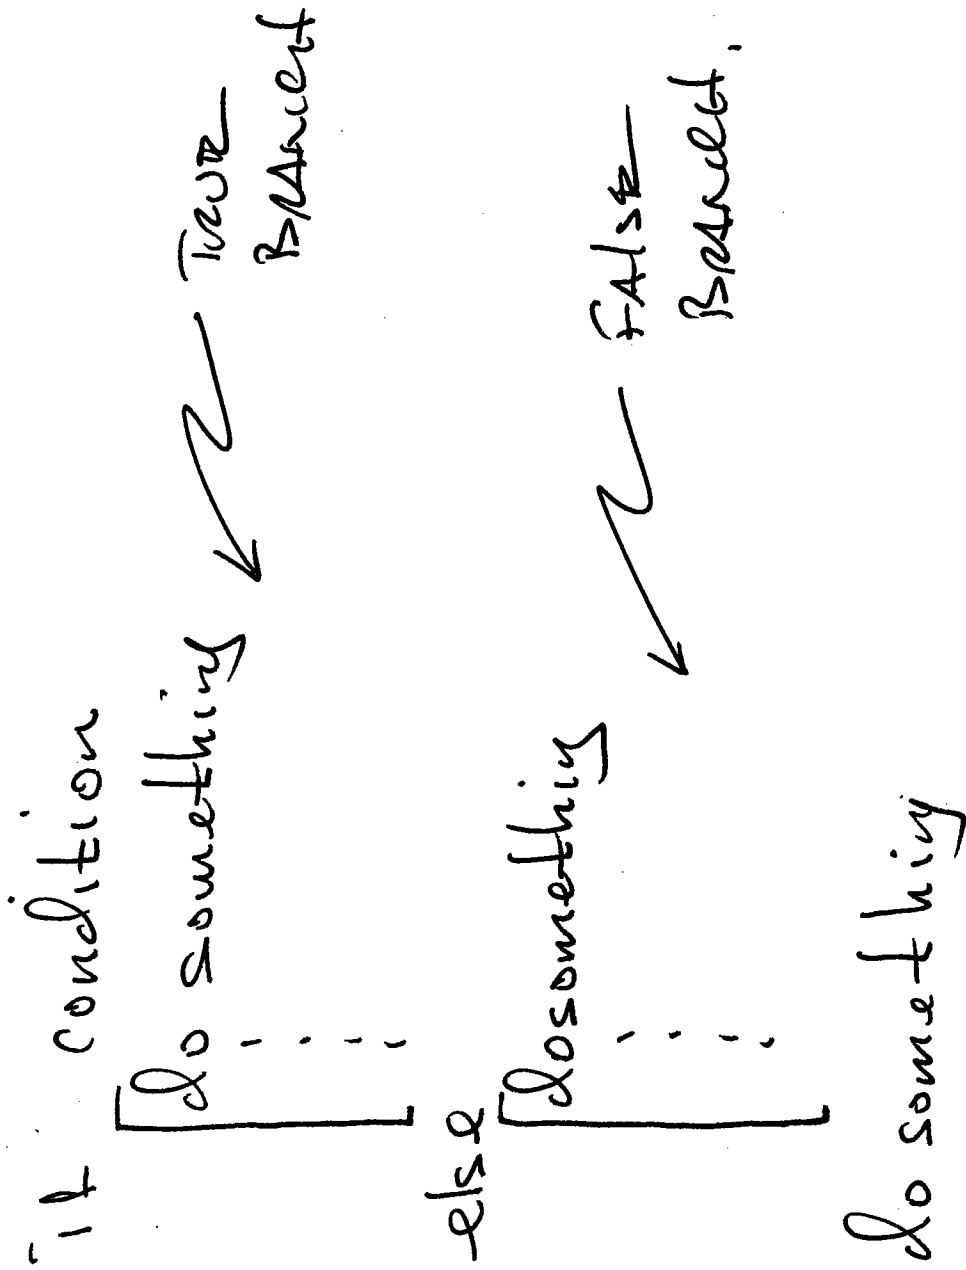 if condition
do something
TRUE
BRANCH
else
dosomething
FALSE
BRANCH.
do something